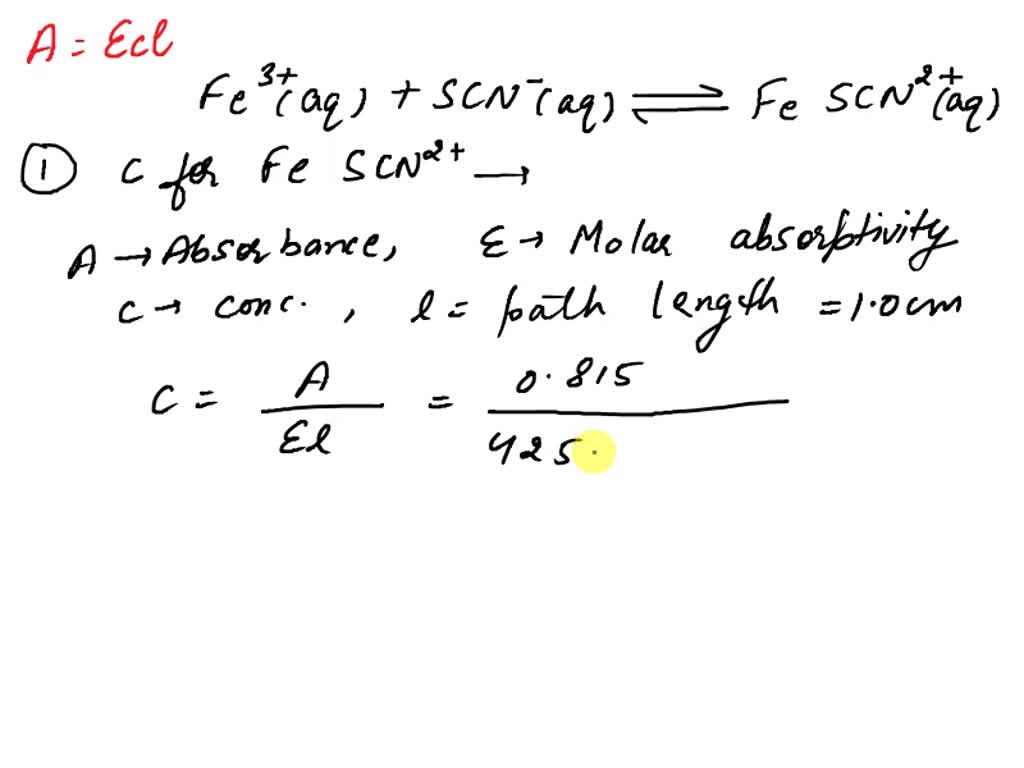 A = Ecl
Fe³⁺(aq) + SCN⁻(aq) ⇌ Fe SCN²⁺(aq)
① C for Fe SCN²⁺ →
A → Absorbance, ε → Molar absorptivity
C → conc. , l = path length = 1.0 cm
C = A / εl = 0.815 / 425.